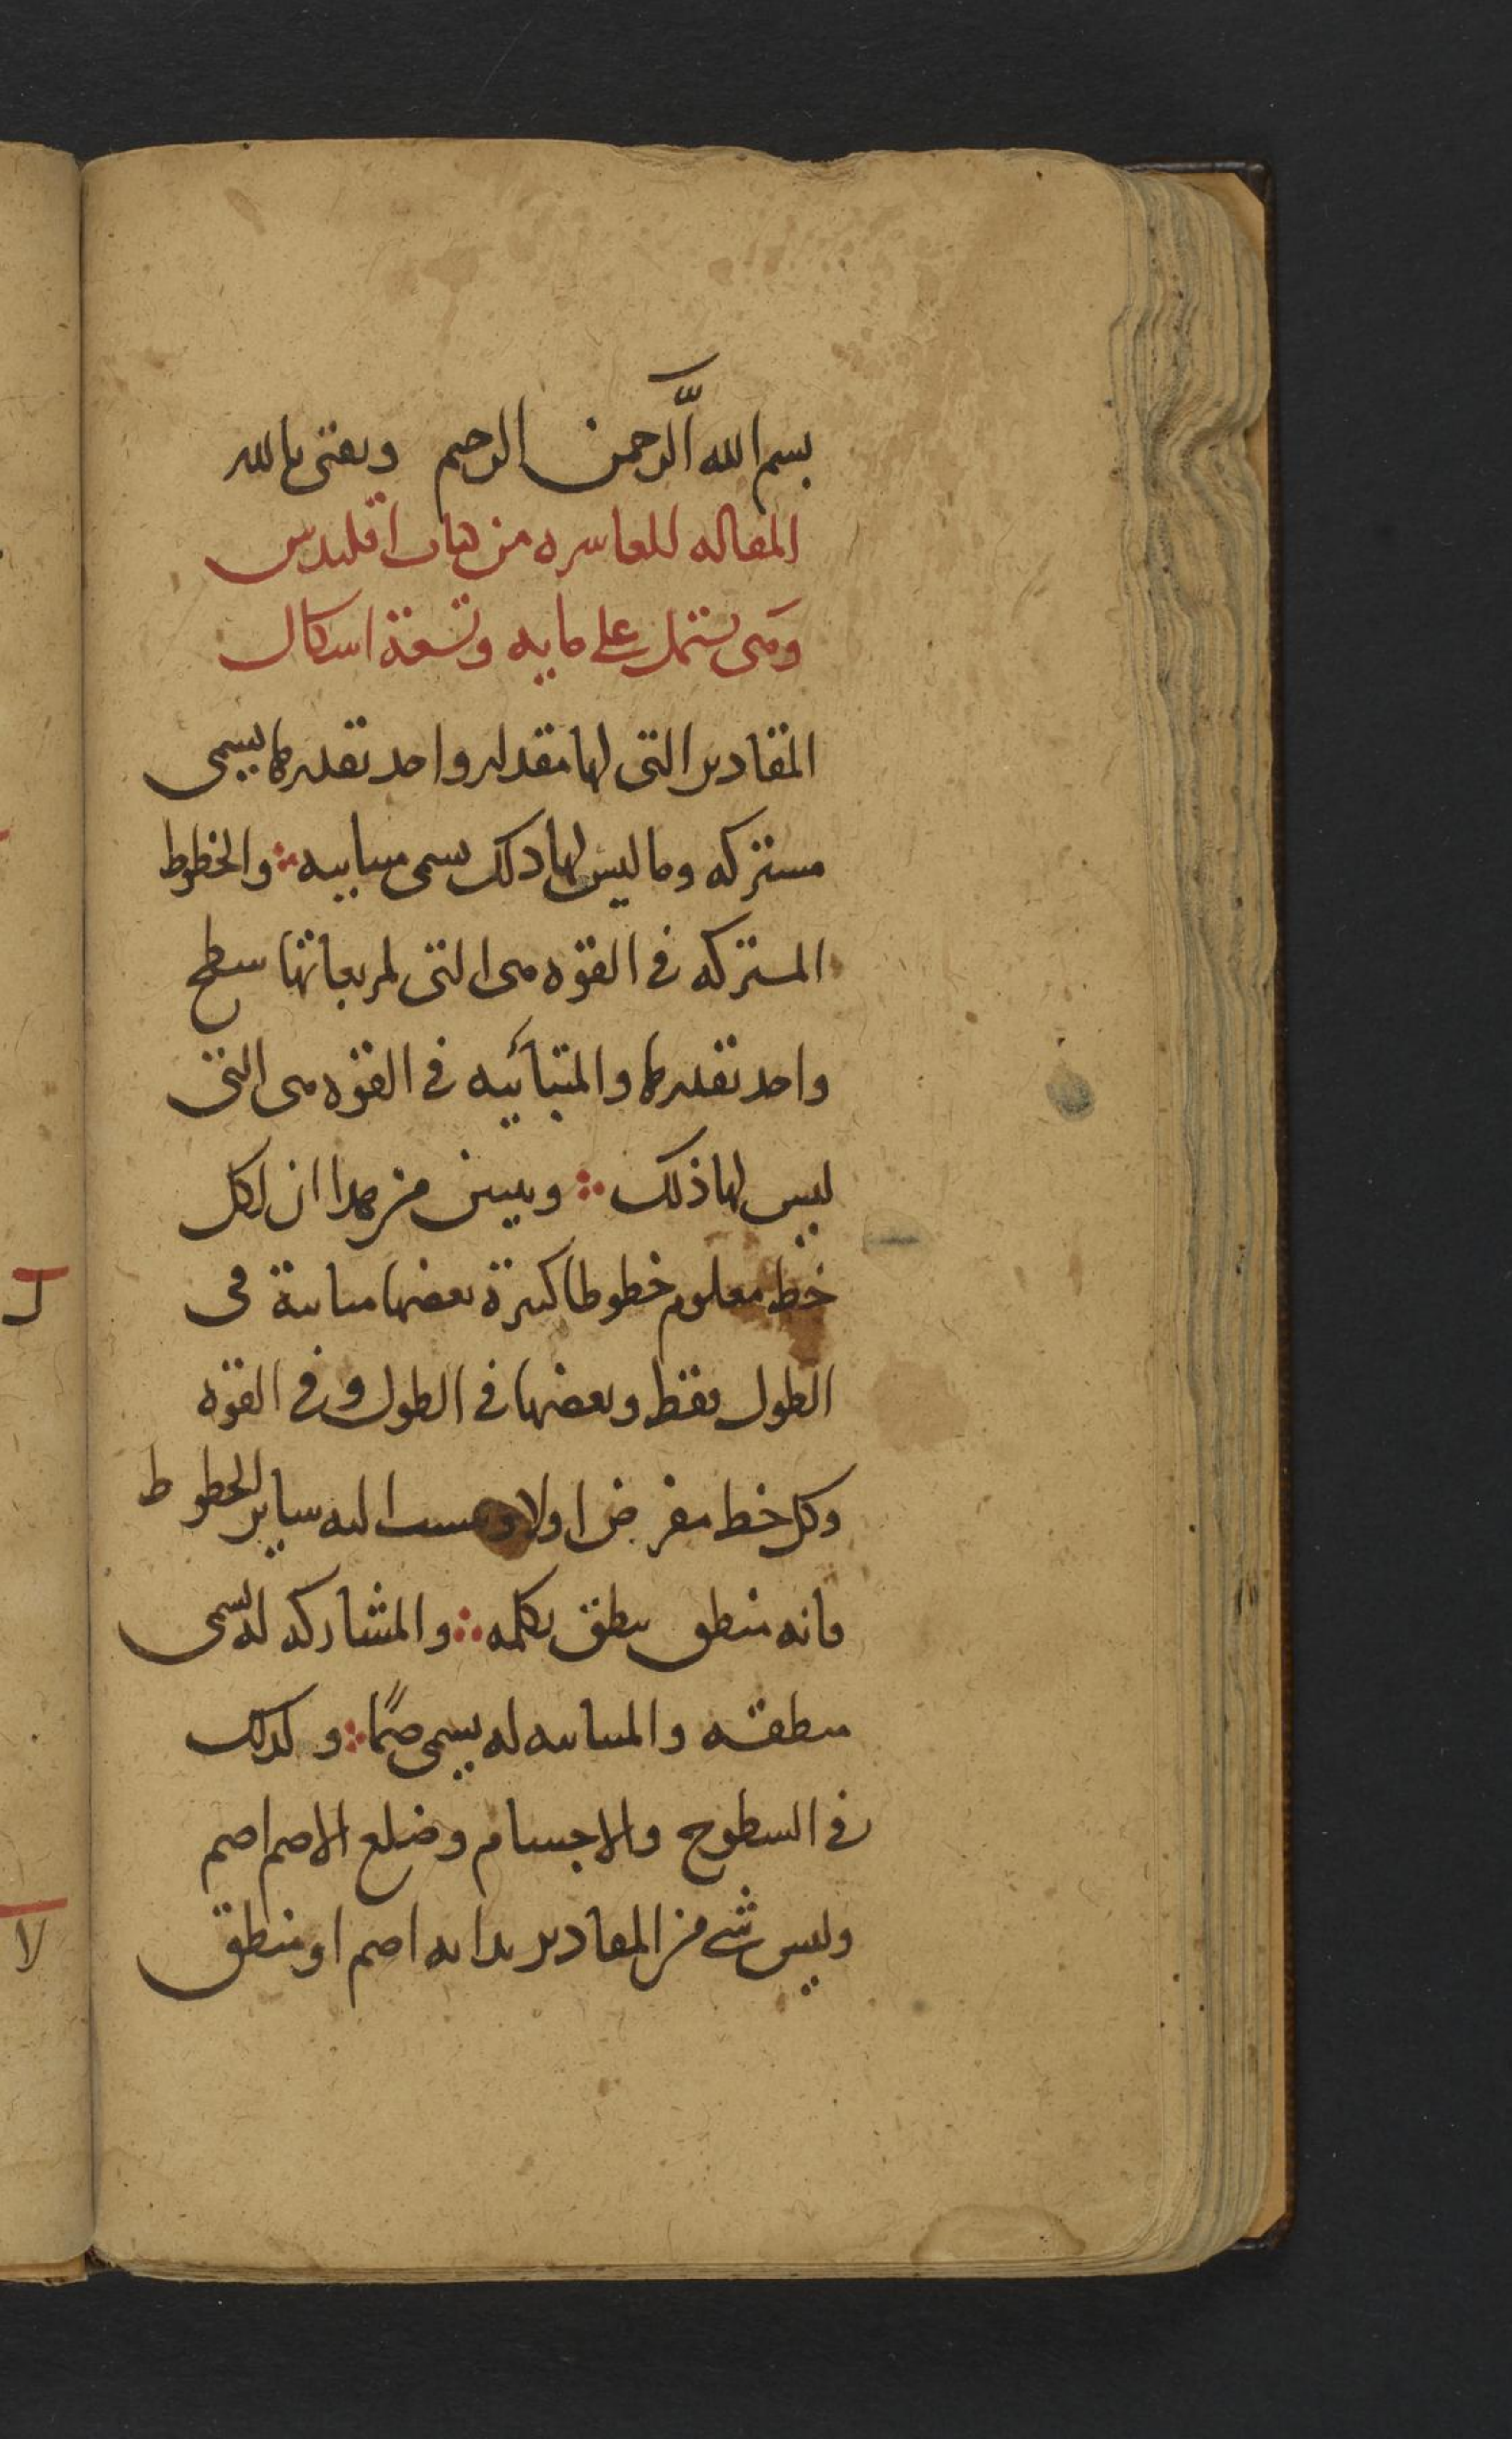 بسم الله الرحمن الرحيم وثقتى بالله
المقاله العاشره من كتاب اقليدس
وهى تشتمل على مايه وتسعة اشكال
المقادير التى لها مقدار واحد يقدرها يسمى
مشتركه وما ليس لها ذلك يسمى متباينه ∴ والخطوط
المشتركه فى القوه هى التى لمربعاتها سطح
واحد يقدرها والمتباينه فى القوه هى التى
ليس لها ذلك ∴ ويتبين من هذا ان لكل
خط معلوم خطوطا كثيرة بعضها مباينة فى
الطول فقط وبعضها فى الطول وفى القوه
وكل خط مفرض اولا ونسبت اليه ساير الخطوط
فانه منطق ينطق بكلمه ∴ والمشاركه له تسمى
منطقه والمباينه له يسمى صمًا ∴ وكذلك
فى السطوح والاجسام وضلع الاصم اصم
وليس شى من المقادير بذاته اصم او منطق
ل
لا